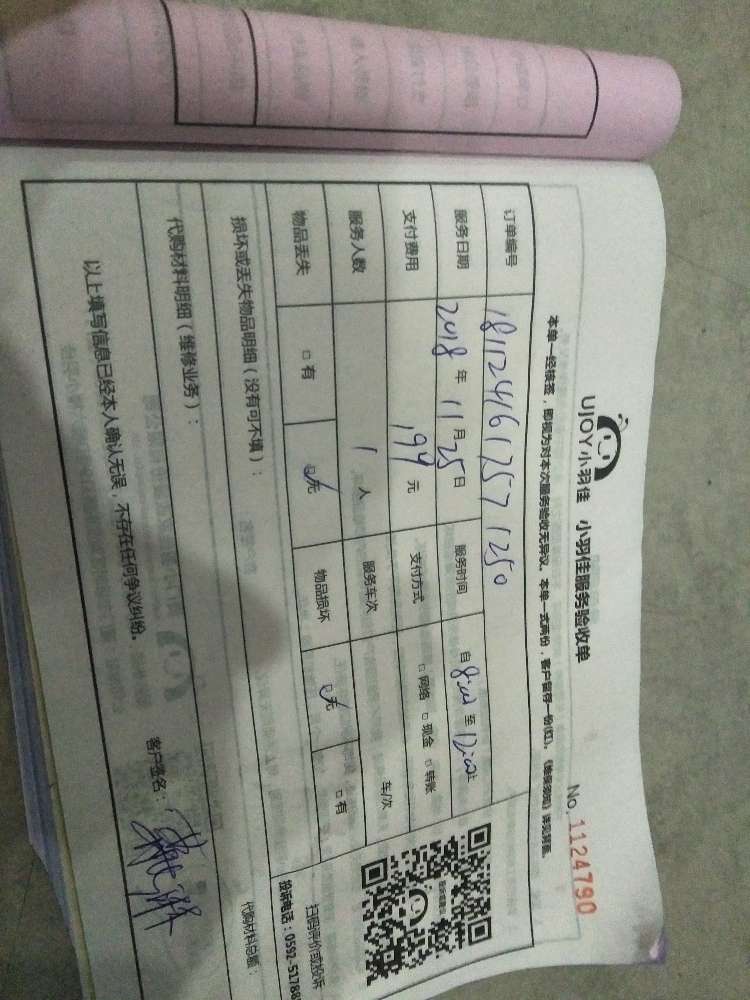 UJOY小羽佳 小羽佳服务验收单
No.1124790
本单一经核签，即视为对本次服务验收无异议。本单一式两份，客户留存一份(红)。
订单编号 181124161257 1250
服务日期 2018 年 11 月 25 日 服务时间 自 8:00 至 12:00 止
支付费用 194 元 支付方式 □ 网络 □ 现金 □ 转账
服务人数 1 人 服务车次 车/次
物品丢失 □ 有 ☑ 无 物品损坏 ☑ 无 □ 有
扫码评价或投诉
投诉电话：0592-51788
损坏或丢失物品明细（没有可不填）：
代购材料明细（维修业务）：
代购材料总额：
以上填写信息已经本人确认无误，不存在任何争议纠纷。
客户签名：